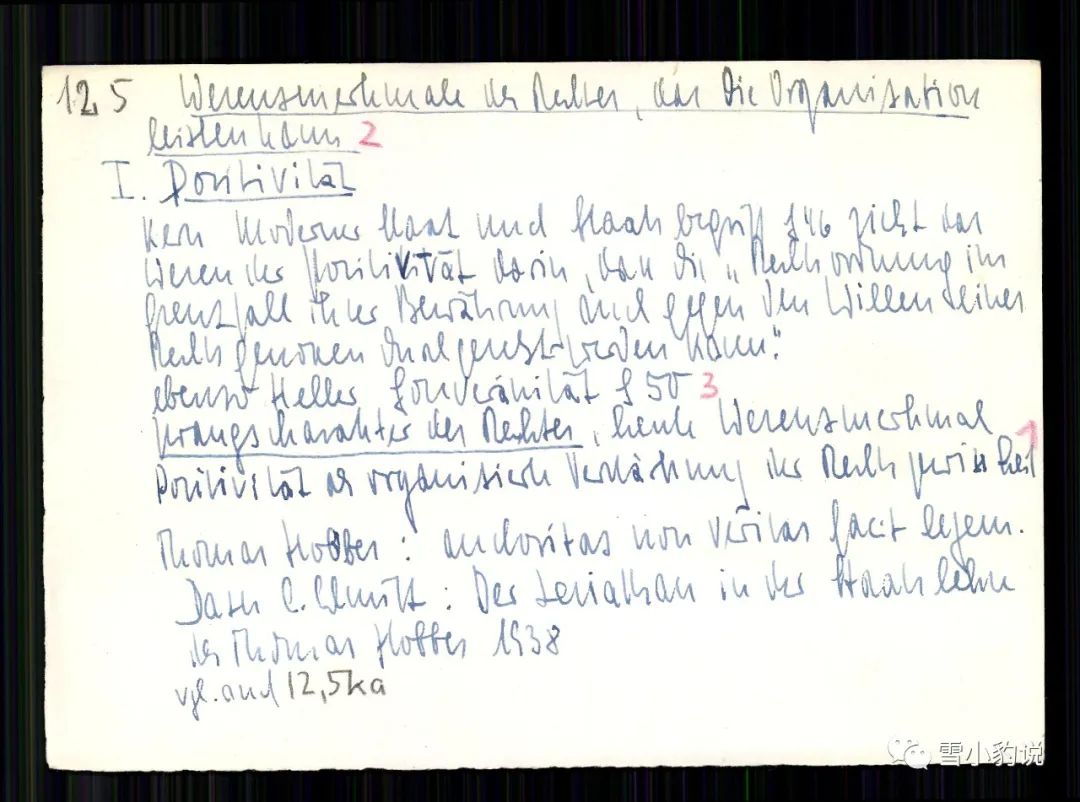 12,5 Wesensmerkmale des Rechtes, das die Organisation
leisten kann 2
I. Positivität
Kern Moderner Staat und Staatsbegriff S 46 sieht das
Wesen der Positivität darin, daß die „Rechtsordnung im
Grenzfall ihrer Bewährung auch gegen den Willen eines
Rechtsgenossen durchgesetzt werden kann."
ebenso Heller Souveränität S 50 3
Zwangscharakter des Rechtes, heute Wesensmerkmal 1
Positivität als organisierte der Rechts
Thomas Hobbes: auctoritas non veritas facit legem.
Dazu C. Schmitt: Der Leviathan in der Staatslehre
des Thomas Hobbes 1938
vgl. auch 12,5ka
雪小豹说